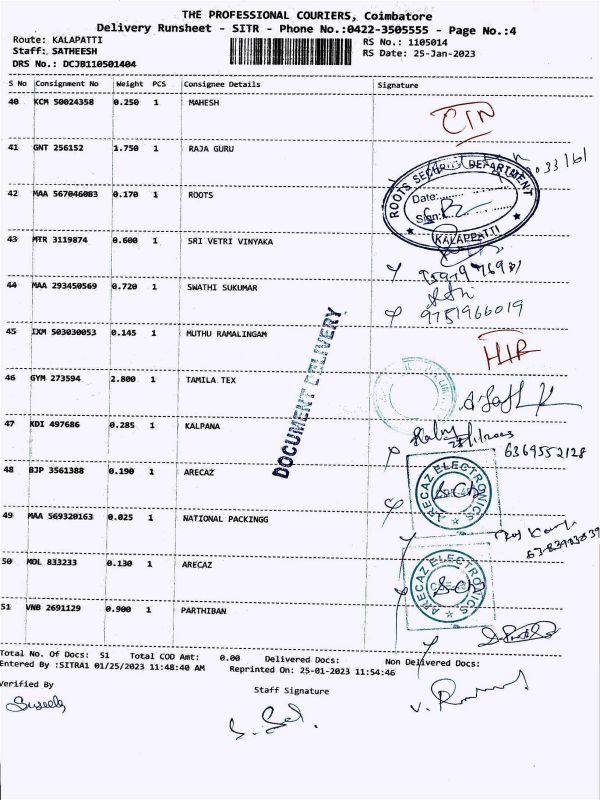 THE PROFESSIONAL COURIERS, Coimbatore
Delivery Runsheet - SITR - Phone No.:0422-3505555 - Page No.:4
Route: KALAPATTI
RS No.: 1105014
Staff: SATHEESH
RS Date: 25-Jan-2023
DRS No.: DCJB110501404
S No Consignment No Weight PCS Consignee Details Signature
40 KCM 50024358 0.250 1 MAHESH
41 GNT 256152 1.750 1 RAJA GURU
42 MAA 567046083 0.170 1 ROOTS
ROOTS SECURITY DEPARTMENT
Date:
Sign:
KALAPPATTI
43 MTR 3119874 0.600 1 SRI VETRI VINYAKA
44 MAA 293450569 0.720 1 SWATHI SUKUMAR
9751966019
45 IXM 503030053 0.145 1 MUTHU RAMALINGAM
DOCUMENT DELIVERY
46 GYM 273594 2.800 1 TAMILA TEX
47 KDI 497686 0.285 1 KALPANA
6369552128
48 BJP 3561388 0.190 1 ARECAZ
ARECAZ ELECTRONICS
49 MAA 569320163 0.025 1 NATIONAL PACKINGG
50 MOL 833233 0.130 1 ARECAZ
ARECAZ ELECTRONICS
51 VNB 2691129 0.900 1 PARTHIBAN
Total No. Of Docs: 51 Total COD Amt: 0.00 Delivered Docs: Non Delivered Docs:
Entered By :SITRA1 01/25/2023 11:48:40 AM Reprinted On: 25-01-2023 11:54:46
Verified By
Staff Signature